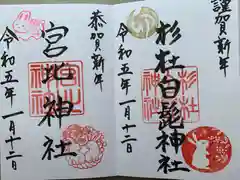 謹賀新年
杉杜白髭神社
令和五年一月十二日
恭賀新年
宮地神社
令和五年一月十二日